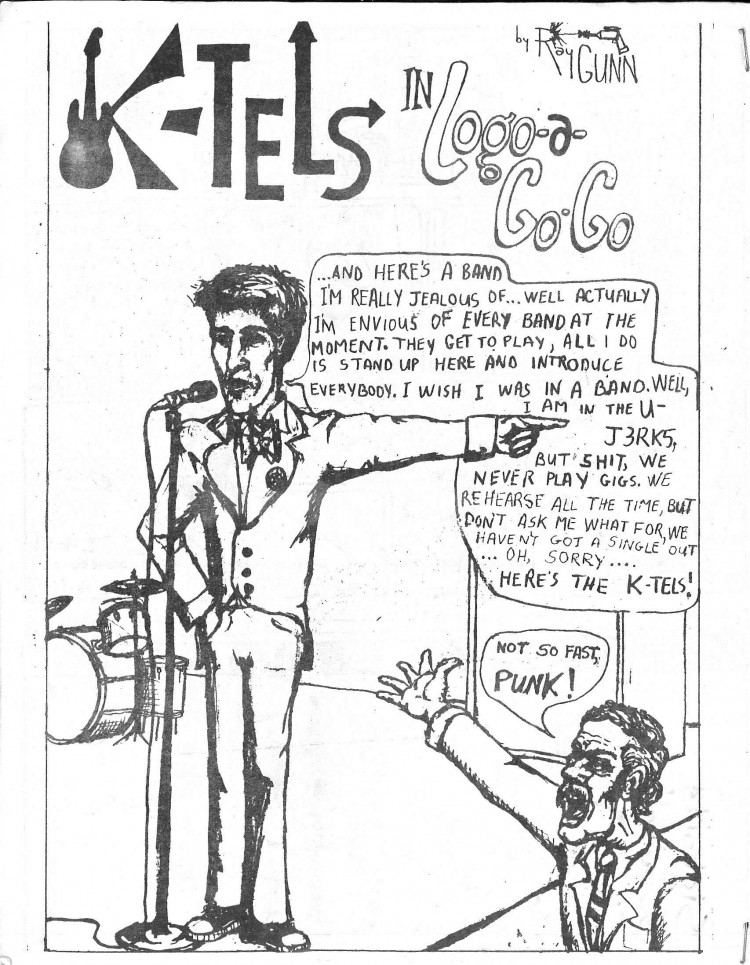 K-TELS
IN Logo-a-
Go-Go
by RAYGUNN
...AND HERE'S A BAND
I'M REALLY JEALOUS OF... WELL ACTUALLY
I'M ENVIOUS OF EVERY BAND AT THE
MOMENT. THEY GET TO PLAY, ALL I DO
IS STAND UP HERE AND INTRODUCE
EVERYBODY. I WISH I WAS IN A BAND. WELL,
I AM IN THE U-
J3RK5,
BUT SHIT, WE
NEVER PLAY GIGS. WE
REHEARSE ALL THE TIME, BUT
DON'T ASK ME WHAT FOR, WE
HAVEN'T GOT A SINGLE OUT
... OH, SORRY ....
HERE'S THE K-TELS!
NOT SO FAST,
PUNK!